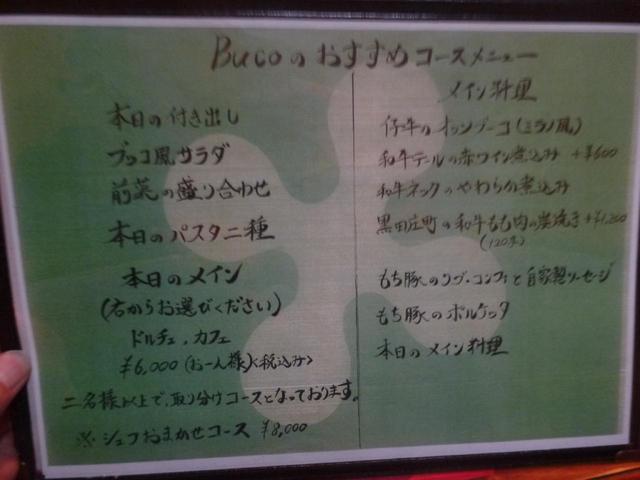 Bucoのおすすめコースメニュー
本日の付き出し
ブッコ風サラダ
前菜の盛り合わせ
本日のパスタ二種
本日のメイン
(右からお選びください)
ドルチェ、カフェ
¥6,000(お一人様)<税込み>
二名様以上で、取り分けコースとなっております。
※シェフおまかせコース ¥8,000
メイン料理
仔牛のオッソブーコ(ミラノ風)
和牛テールの赤ワイン煮込み +¥600
和牛ネックのやわらか煮込み
黒田庄町の和牛もも肉の炭焼き +¥1,200
(120g)
もち豚のリブ・コンフィと自家製ソーセージ
もち豚のポルケッタ
本日のメイン料理